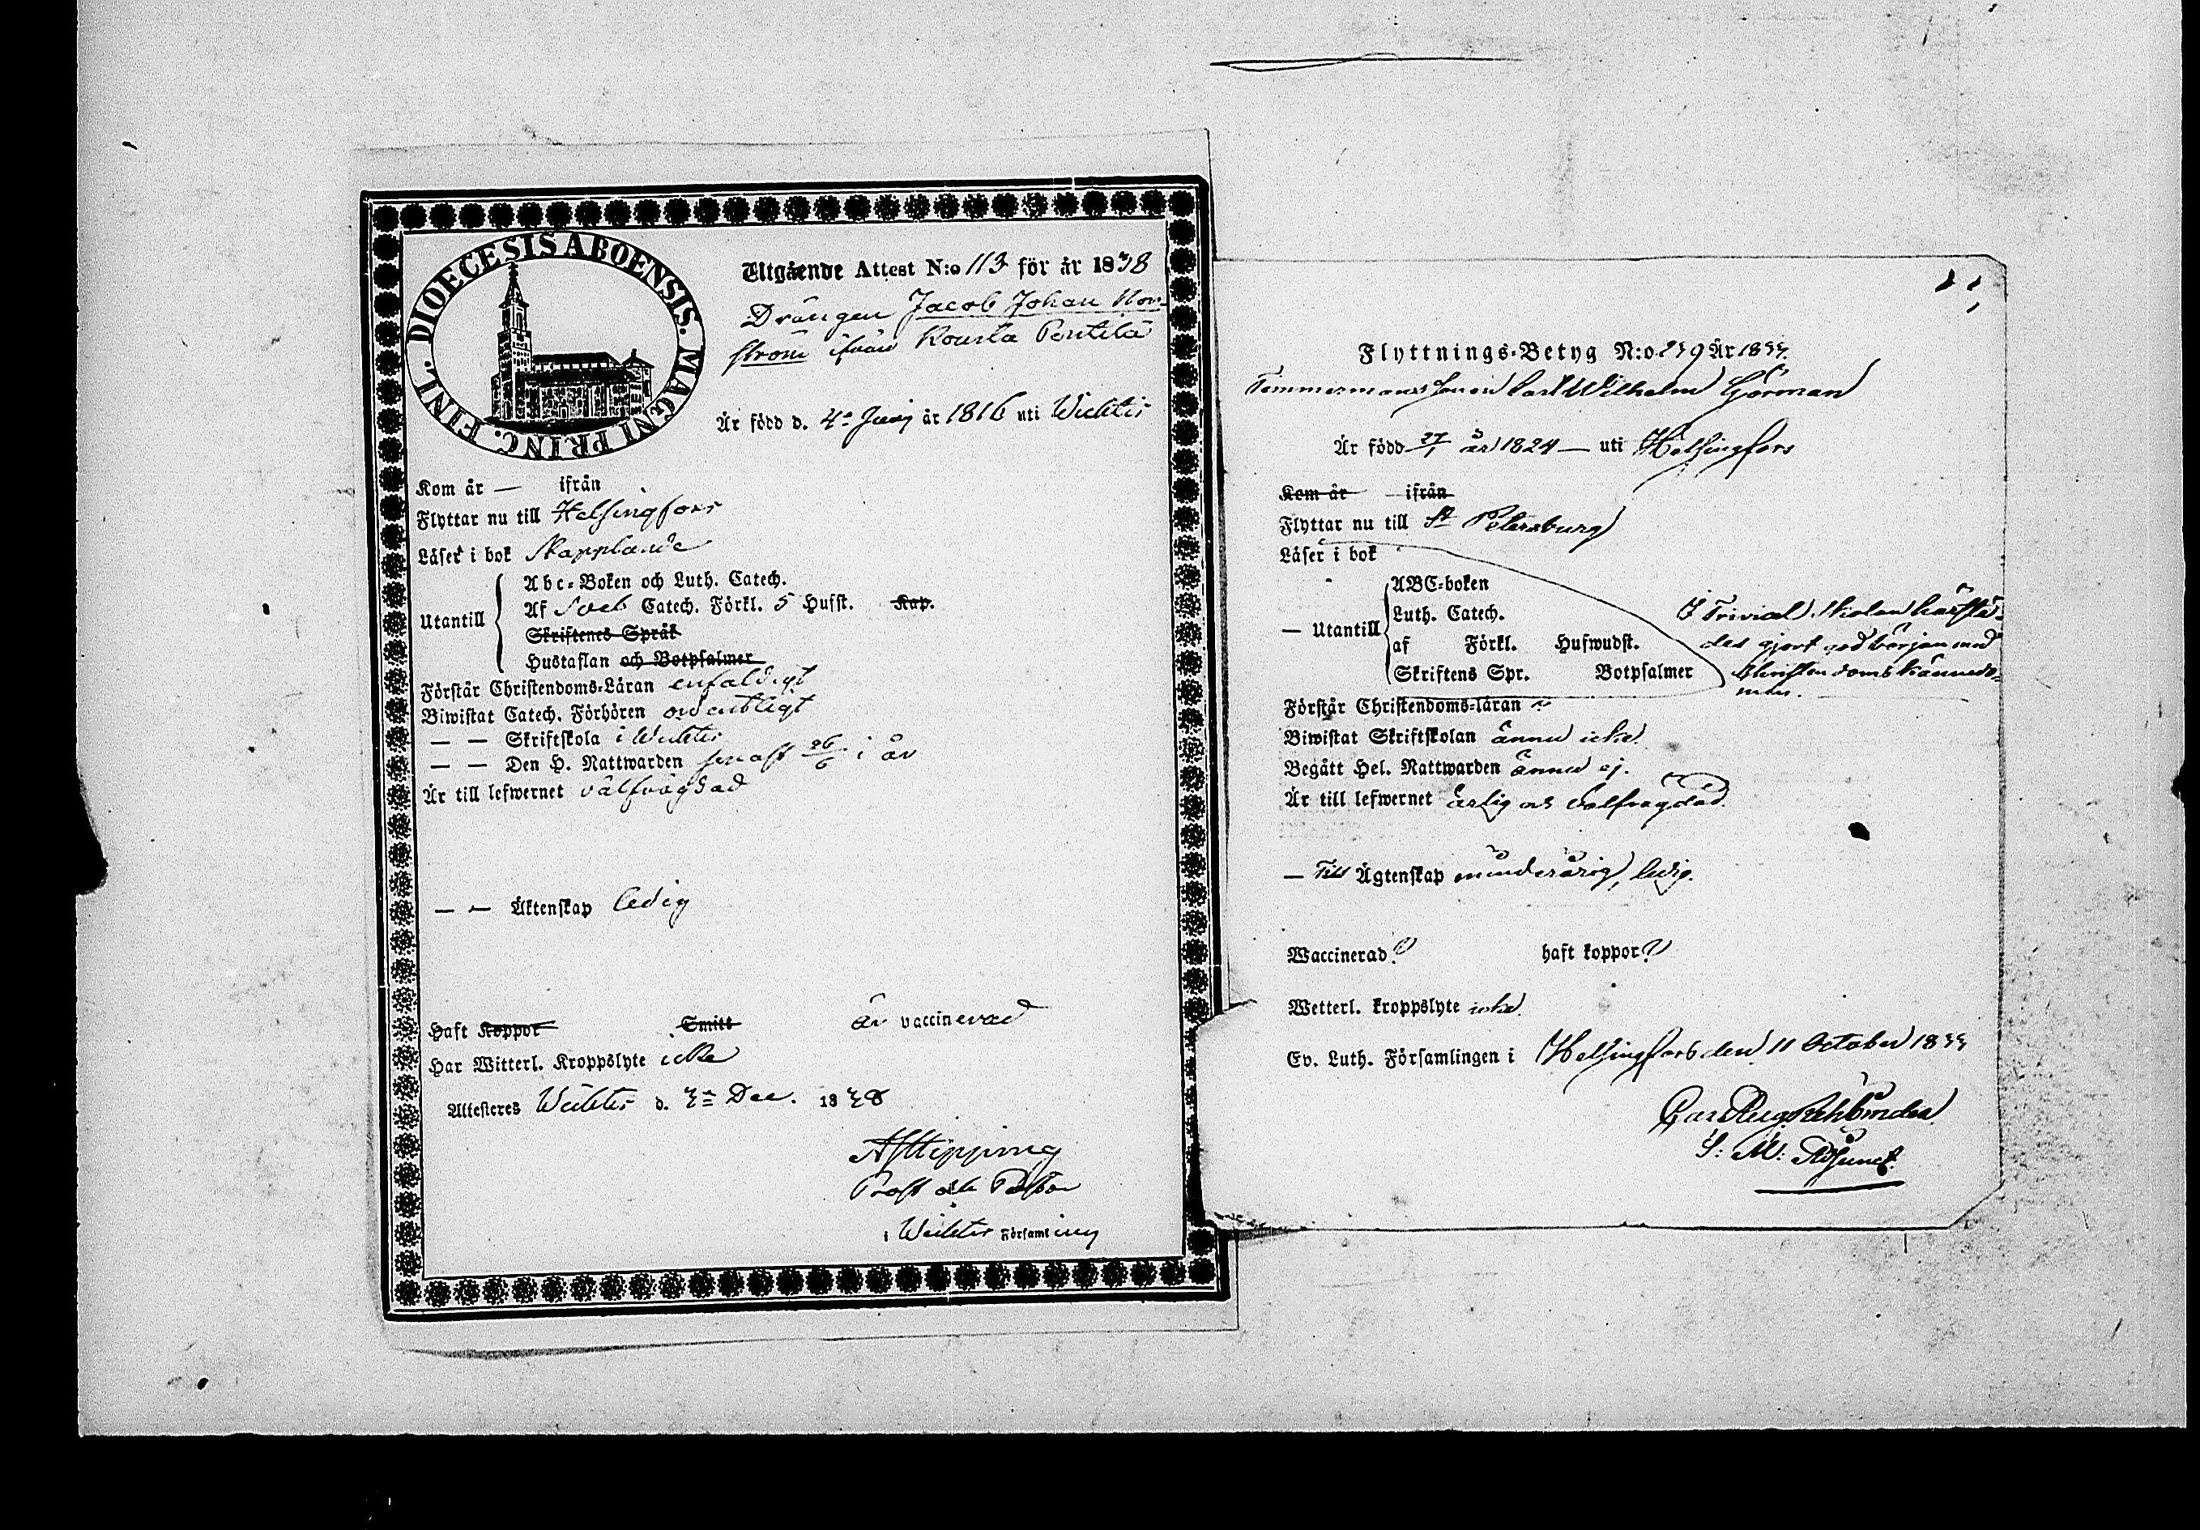 DIOECESIS ABOENSIS. MAGNI PRINC. FINL.
Utgående Attest N:o 113 för år 1838
Drängen Jacob Johan Nor-
ström ifrån Rousla Pentilä
Är född d. 4de Junij år 1816 uti Wichtis
Kom år — ifrån
Flyttar nu till Helsingfors
Läser i bok
Utantill
Abc-Boken och Luth. Catech.
Af Sveb Catech. Förkl. 5 Hufst. Kap.
Skriftenes Språk
Hustaflan och Botpsalmer
Förstår Christendoms-Läran enfaldigt
Biwistat Catech. Förhören ordentligt
— — Skriftskola i Wichtis
— — Den H. Nattwarden senast 26/6 i år
Är till lefwernet välfrägdad
— — Äktenskap ledig
Haft Koppor Smitt är vaccinerad
Har Witterl. Kroppslyte icke
Attesteres Wichtis d. 3de Dec. 1838
Prost och Pastor
i Wichtis Församling
Flyttnings-Betyg N:o 239 År 1833.
Timmermans sonen Carl Wilhelm Görman
Är född 27/1 år 1824 — uti Helsingfors
Kom år — ifrån
Flyttar nu till St Petersburg
Läser i bok
— Utantill
ABC-boken
Luth. Catech.
af Förkl. Hufwudst.
Skriftens Spr. Botpsalmer
I Trivial Skolan härstä-
des gjort god början med
Christendoms kännedo-
men.
Förstår Christendoms-läran
Biwistat Skriftskolan ännu icke.
Begått Hel. Nattwarden ännu ej.
Är till lefwernet ärlig och välfrägdad.
— Till Ägtenskap minderårig, ledig.
Waccinerad? haft koppor?
Wetterl. kroppslyte icke
Ev. Luth. Församlingen i Helsingfors den 11 October 1833
S: M: Adjunct.